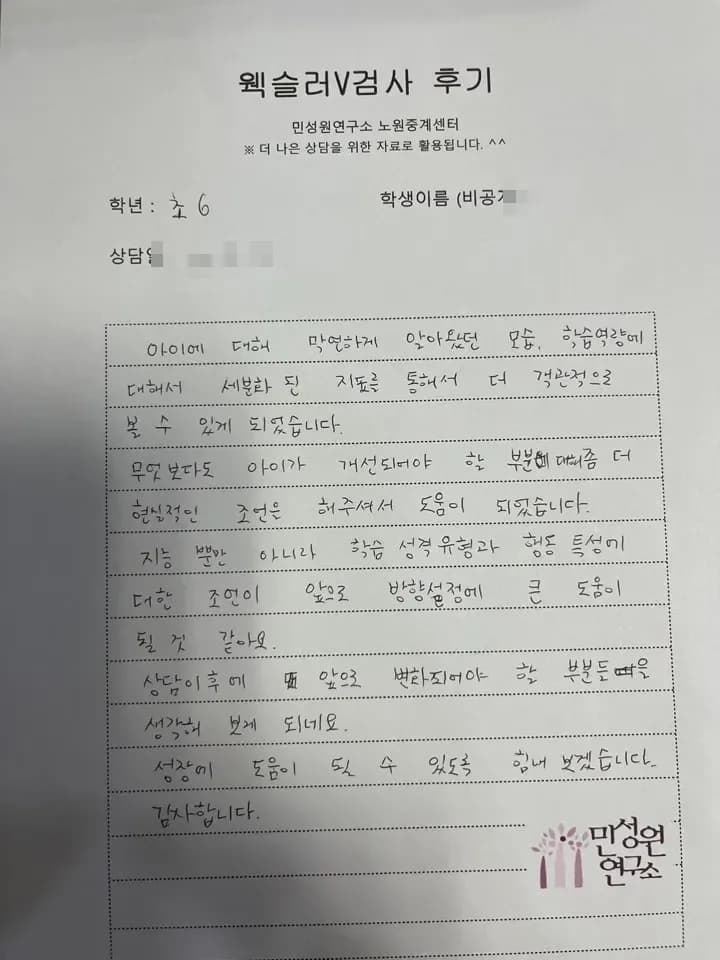 웩슬러V검사 후기
민성원연구소 노원중계센터
※ 더 나은 상담을 위한 자료로 활용됩니다. ^^
학년 : 초 6
학생이름 (비공개
상담일
아이에 대해 막연하게 알아왔던 모습, 학습역량에
대해서 세분화 된 지표를 통해서 더 객관적으로
볼 수 있게 되었습니다.
무엇보다도 아이가 개선되어야 할 부분에 대해 좀 더
현실적인 조언을 해주셔서 도움이 되었습니다.
지능 뿐만 아니라 학습 성격 유형과 행동 특성에
대한 조언이 앞으로 방향설정에 큰 도움이
될 것 같아요.
상담이후에 앞으로 변화되어야 할 부분들을
생각해 보게 되네요.
성장에 도움이 될 수 있도록 힘내 보겠습니다.
감사합니다.
민성원
연구소